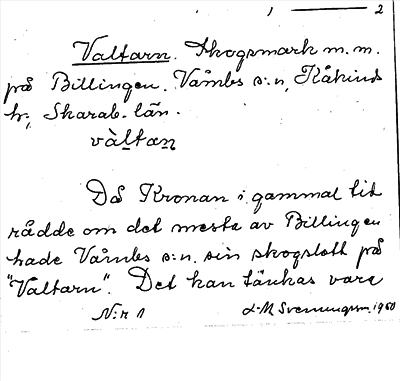 1 — 2
Valtarn. Skogsmark m.m.
på Billingen. Våmbs s:n, Kåkinds
h:, Skarab. län.
vàltaṉ
Då Kronan i gammal tid
rådde om det mesta av Billingen
hade Våmbs s:n. sin skogslott på
"Valtarn". Det kan tänkas vara
N:r 1 L-M Svenungsm. 1960